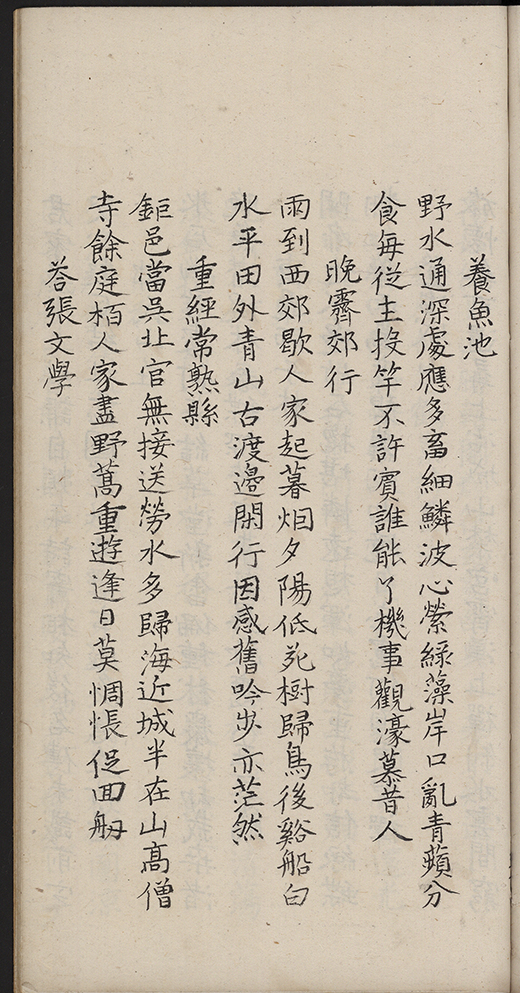 養魚池
野水通深處應多畜細鱗波心縈綠藻岸口亂青蘋分
食每從主投竿不許賓誰能了機事觀濠慕昔人
晚霽郊行
雨到西郊歇人家起暮烟夕陽低死樹歸鳥後谿船白
水平田外青山古渡邊閑行因感舊吟步亦茫然
重經常熟縣
鉅邑當吳北官無接送勞水多歸海近城半在山髙僧
寺餘庭栢人家盡野蒿重遊逢日莫惆悵促回舠
荅張文學